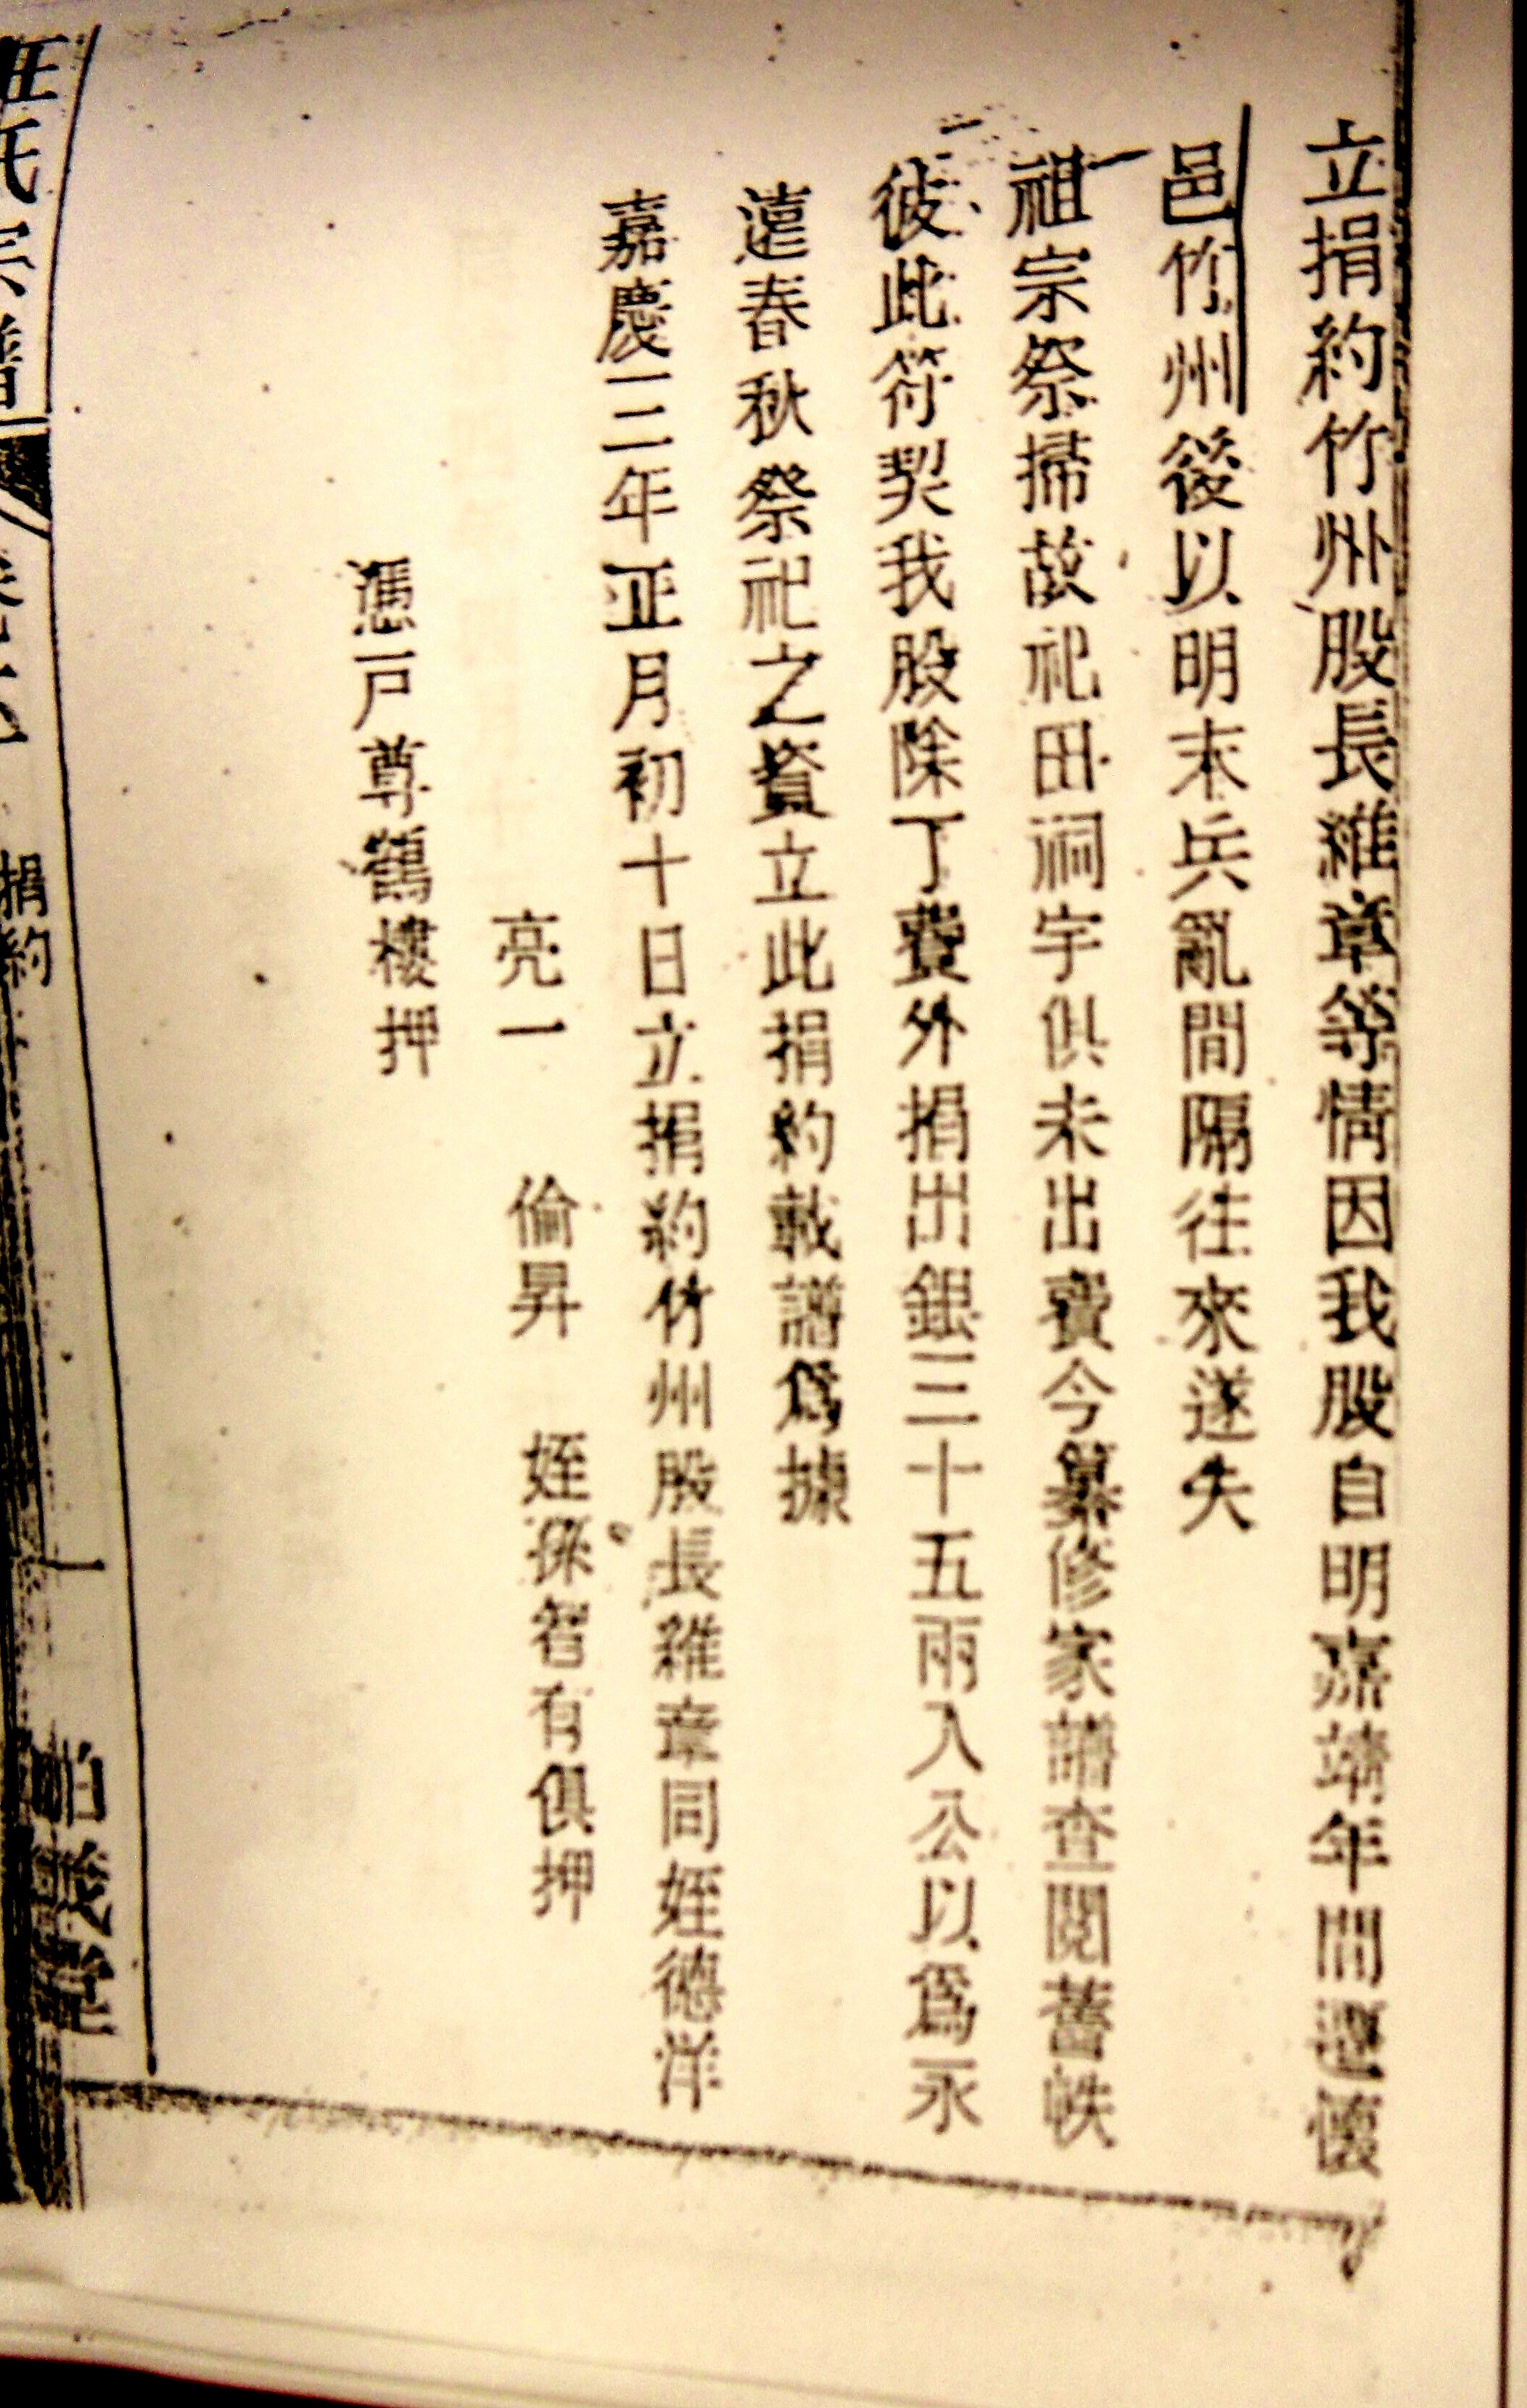 立捐約竹州股長維章等情因我股自明嘉靖年間遷懷
邑竹州後以明末兵亂間隔往來遂失
祖宗祭掃故祀田祠宇俱未出費今纂修家譜查閱舊帙
彼此符契我股除丁費外捐出銀三十五兩入公以爲永
遠春秋祭祀之資立此捐約載譜爲據
嘉慶二年正月初十日立捐約竹州股長維章同姪德洋
亮一 倫昇 姪孫智有俱押
憑戶尊鶴樓押
氏宗譜
捐約
一